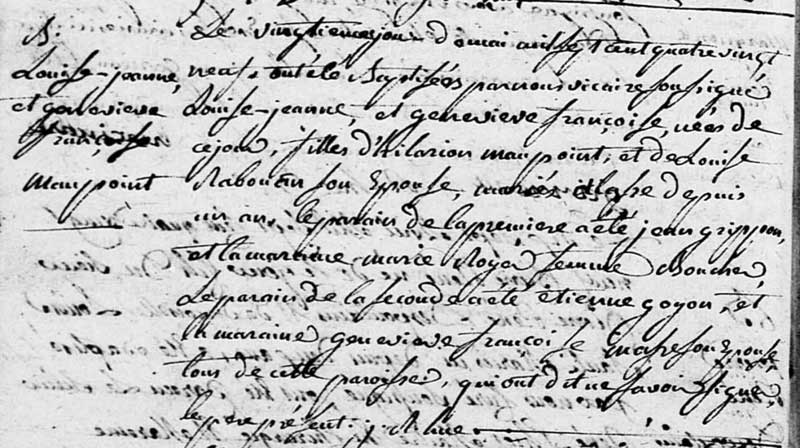 B.
Louise-jeanne,
et genevieve
françoise
Maupoint
Le vingtieme jour de mai mil sept cent quatre vingt
neuf, ont été Baptisées par nous vicaire soussigné
Louise-jeanne, et genevieve françoise, nées de
ce jour, filles d'hilarion maupoint, et de Louise
Rabouan son Epouse, mariés
depuis
un an. le parain de la premiere a été jean grippon,
et la maraine marie Roger femme Boucher,
Le parain de la seconde a été étienne goyon, et
la maraine genevieve françoise
son Epouse,
tous de cette paroisse, qui ont dit ne savoir signer,
le pere présent.